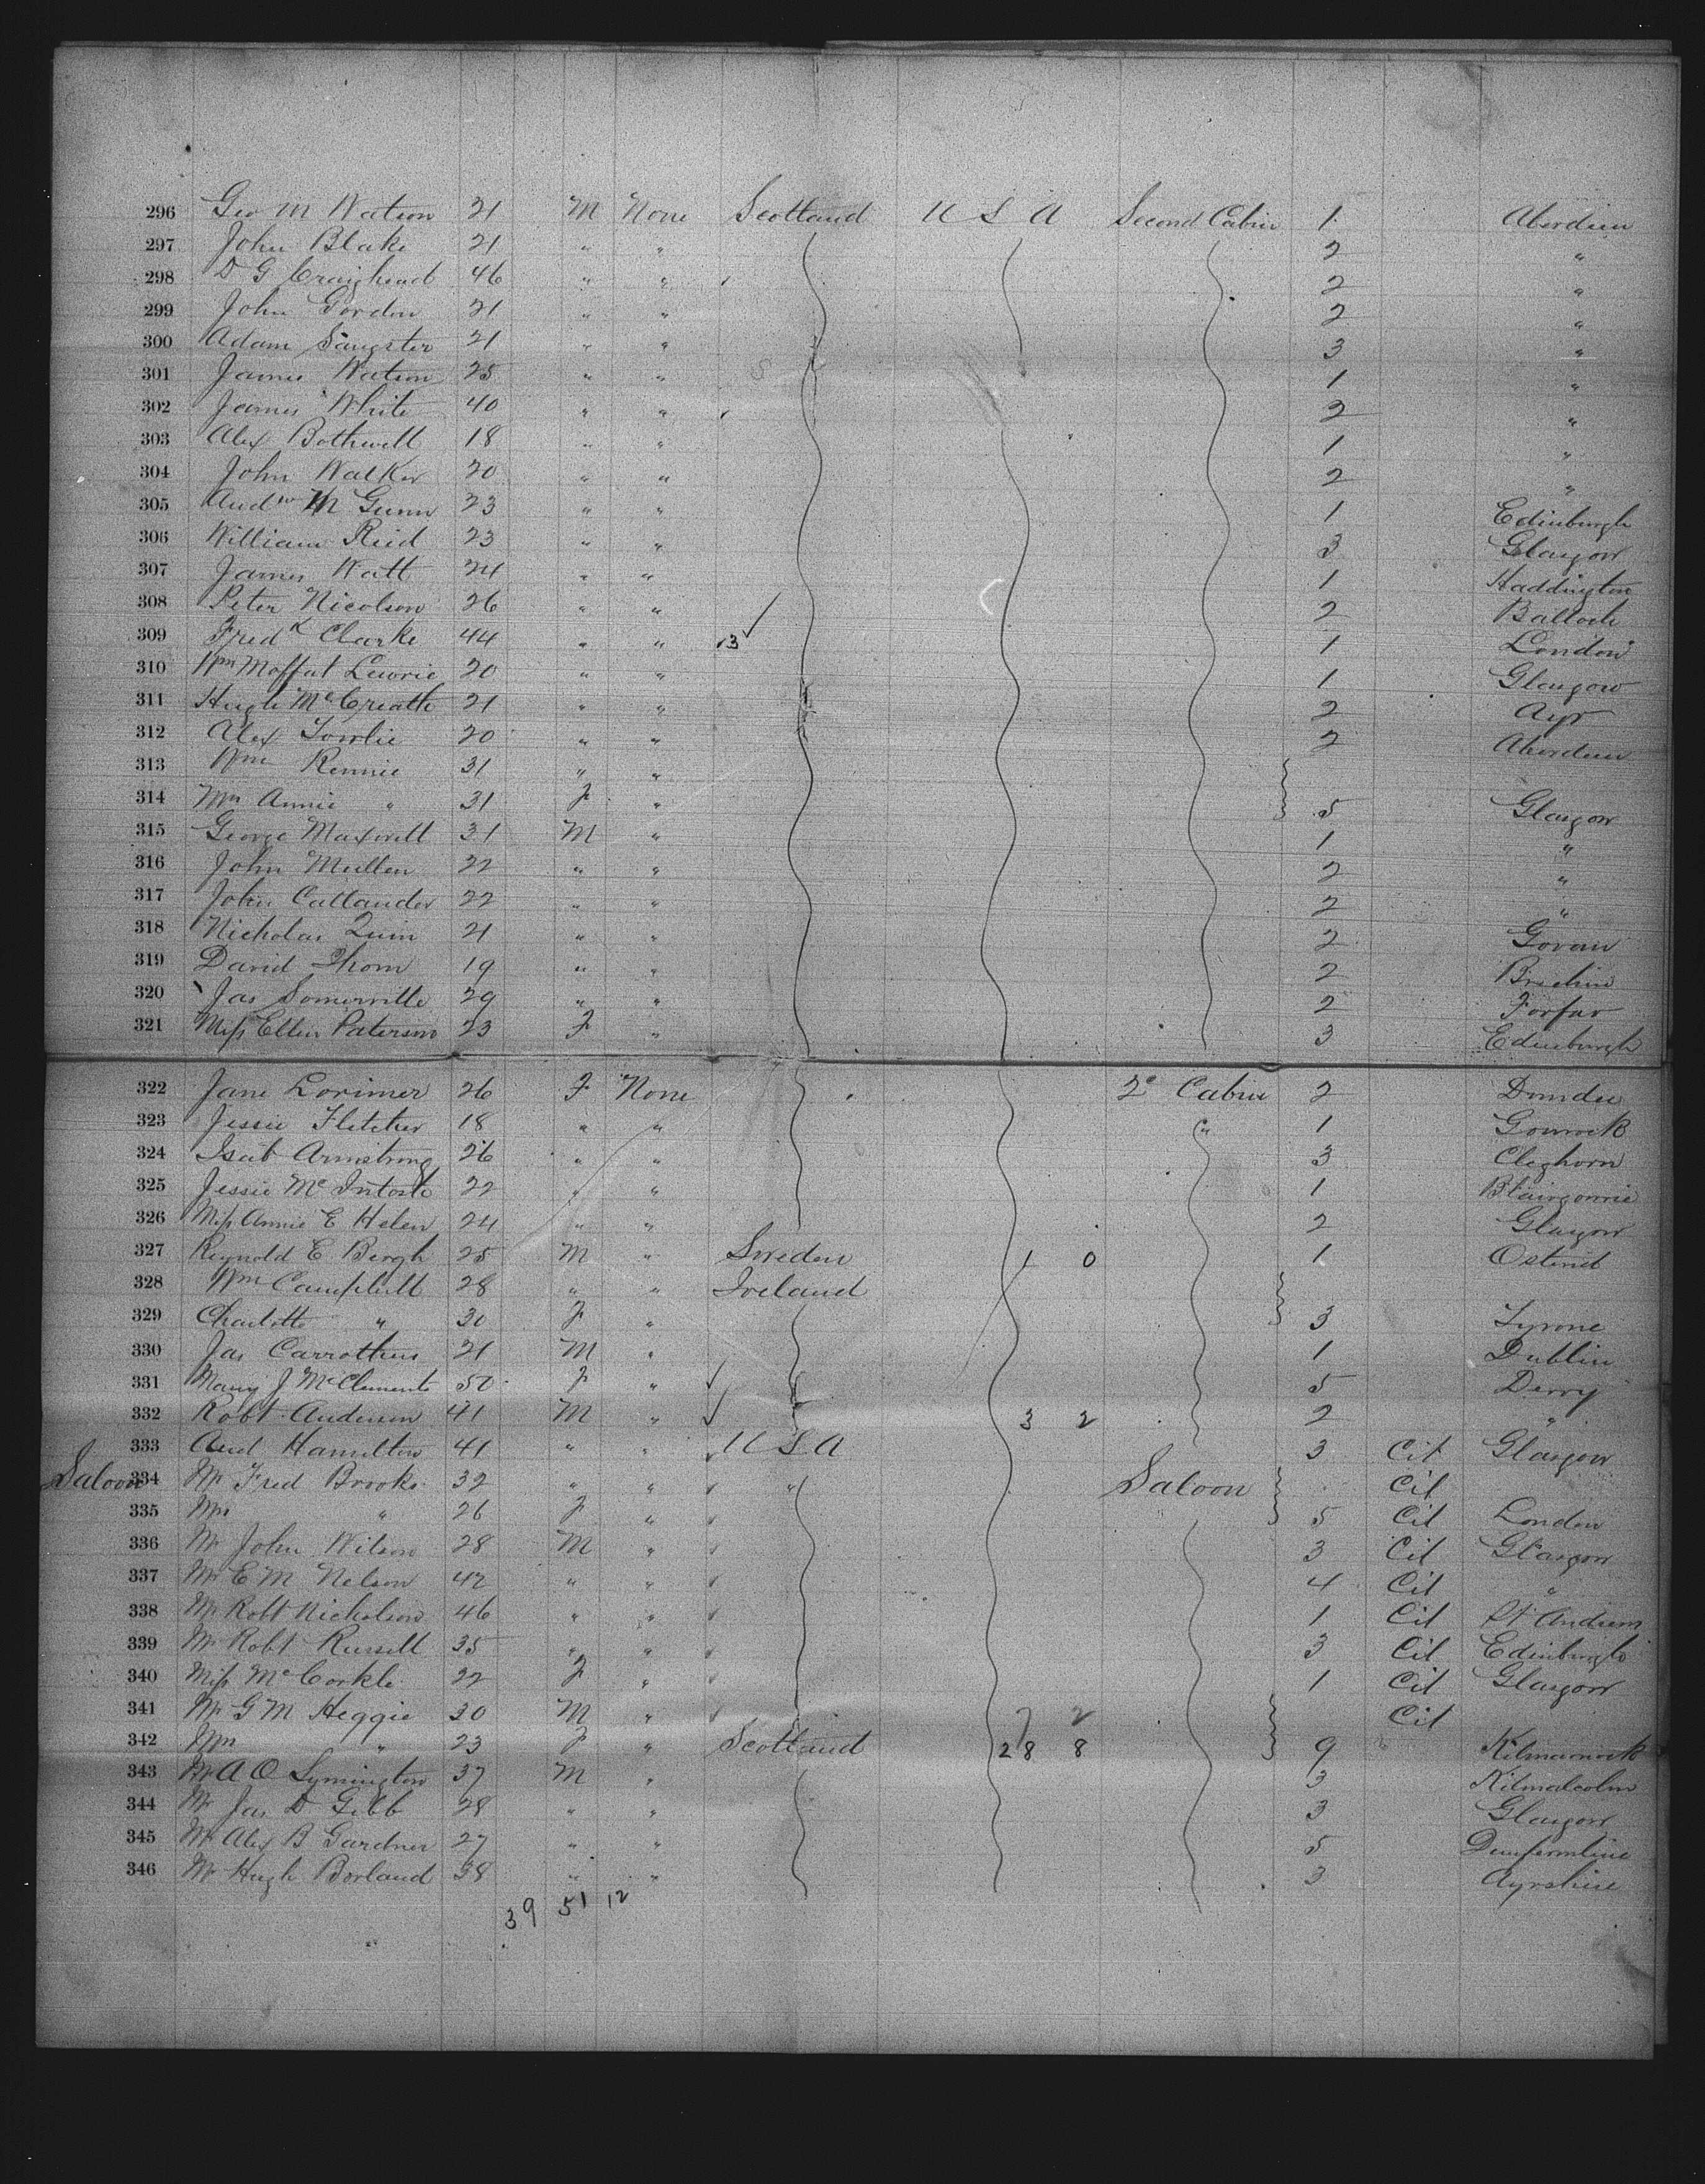 296 Geo M Watson 21 M None Scotland U S A Second Cabin 1 Aberdeen
297 John Blake 21 " " 2 "
298 D G Craighead 46 " " 2 "
299 John Gordon 21 " " 2 "
300 Adam Sangster 21 " " 3 "
301 James Watson 25 " " 1 "
302 James White 40 " " 2 "
303 Alex Bothwell 18 " " 1 "
304 John Walker 20 " " 2 "
305 Andw M Gunn 23 " " 1 Edinburgh
306 William Reid 23 " " 3 Glasgow
307 James Watt 24 " " 1 Haddington
308 Peter Nicolson 26 " " 2 Balloch
309 Fredk Clarke 44 " " 13 ✓ 1 London
310 Wm Moffat Lawrie 20 " " 1 Glasgow
311 Hugh McCreath 21 " " 2 Ayr
312 Alex 20 " " 2 Aberdeen
313 Wm Rennie 31 " "
314 Mrs Annie " 31 F " 5 Glasgow
315 George Maxwell 31 M " 1 "
316 John Mullen 22 " " 2 "
317 John Callander 22 " " 2 "
318 Nicholas Quin 21 " " 2 Govan
319 David Thom 19 " " 2 Brechin
320 Jas Somerville 29 " " 2 Forfar
321 Miss Ellen Paterson 23 F " 3 Edinburgh
322 Jane Lorimer 26 F None 2c Cabin 2 Dundee
323 Jessie Fletcher 18 " " " 1 Gourock
324 Isab Armstrong 26 " " 3 Cleghorn
325 Jessie McIntosh 22 " " 1 Blairgowrie
326 Miss Annie E Helen 24 " " 2 Glasgow
327 Reynold E Bergh 25 M " Sweden 1 0 1 Ostend
328 Wm Campbell 28 " " Ireland
329 Charlotte " 30 F " 3 Tyrone
330 Jas Carrothers 21 M " 1 Dublin
331 Mary J McClements 50 F " ✓ 5 Derry
332 Robt Anderson 41 M " ✓ 3 2 2 "
333 And Hamilton 41 " " U S A 3 Cit Glasgow
Saloon 334 Mr Fred Brooks 32 " " " Saloon Cit
335 Mrs " 26 F " 5 Cit London
336 Mr John Wilson 28 M " 3 Cit Glasgow
337 Mr E M Nelson 42 " " 4 Cit "
338 Mr Robt Nicholson 46 " " 1 Cit St Andrews
339 Mr Robt Russell 35 " " 3 Cit Edinburgh
340 Miss McCorkle 22 F " 1 Cit Glasgow
341 Mr G M Heggie 30 M " 7 2 Cit
342 Mrs " 23 F " Scotland 28 8 9 Kilmarnock
343 Mr A O Lymington 37 M " 3 Kilmalcolm
344 Mr Jas D Gibb 28 " " 3 Glasgow
345 Mr Alex B Gardner 27 " " 5 Dunfermline
346 Mr Hugh Borland 38 " " 3 Ayrshire
39 51 12